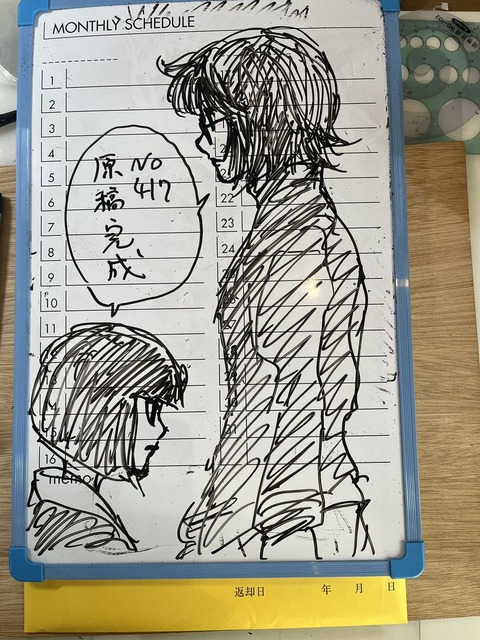 MONTHLY SCHEDULE
1
2
3
4
5
6
7
8
9
10
11
16
memo
22
23
24
No
417
原稿完成
返却日 年 月 日